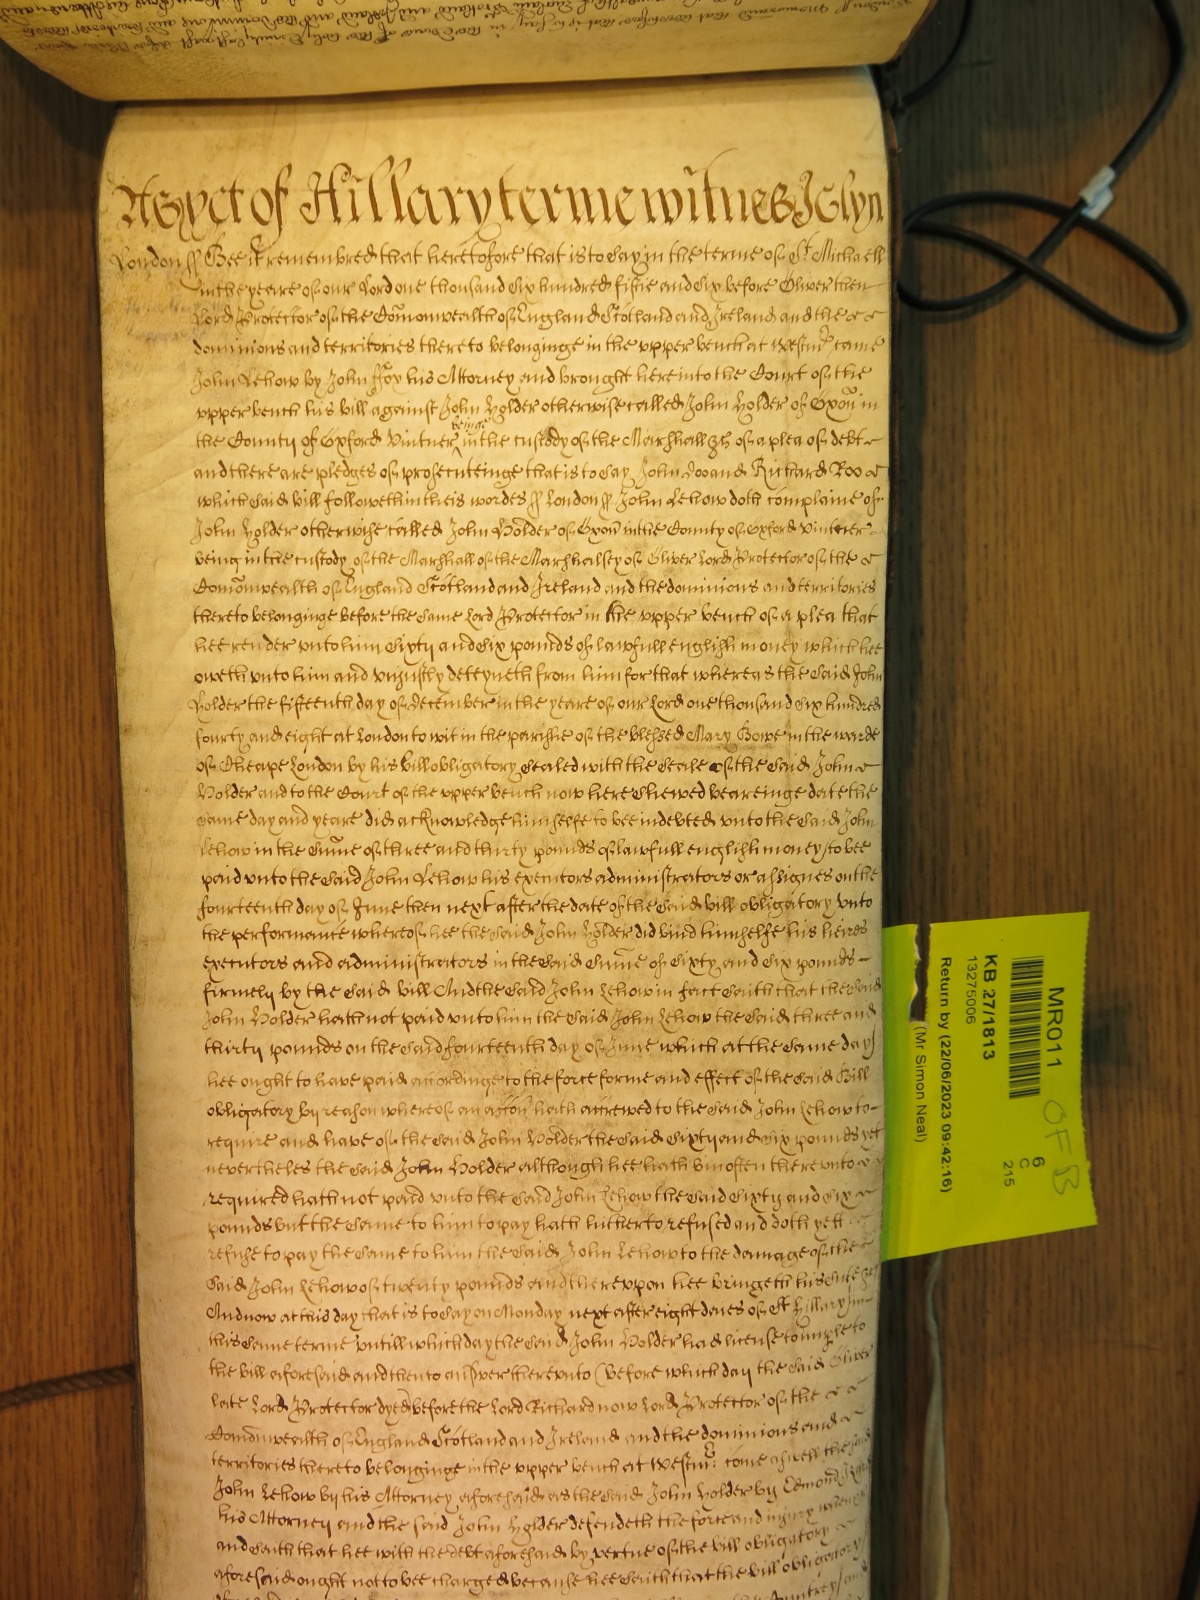 As yet of Hillary terme witnes Jo Glyn
London ss Bee it remembred that heretofore that is to say in the terme of St Michaell
in the yeare of our Lord one thousand six hundred fiftie and six before Oliver then
Lord Protector of the Comonwealth of England Scotland and Ireland and the
dominions and territories thereto belonginge in the upper bench at Westmr came
John Lehow by John ffox his Attorney and brought here into the Court of the
upper bench his bill against John Holder otherwise called John Holder of Exon in
the County of Oxford Vintner beinge in the custody of the Marshall &c of a plea of debt
and there are pledges of prosecuteinge that is to say John Doo and Richard Roo
which said bill followeth in theis wordes ss London ss John Lehow doth complaine of
John Holder otherwise called John Holder of Exon in the County of Oxford Vintner
being in the custody of the Marshall of the Marshalsey of Oliver Lord Protector of the
Comonwealth of England Scotland and Ireland and the dominions and territories
thereto belonginge before the same Lord Protector in the upper bench of a plea that
hee render unto him sixty and six pounds of lawfull english money which hee
oweth unto him and unjustly deteyneth from him for that whereas the said John
Holder the fifteenth day of december in the yeare of our Lord one thousand six hundred
fourty and eight at London to wit in the parishe of the blessed Mary Bowe in the warde
of Cheape London by his bill obligatory sealed with the seale of the said John
Holder and to the Court of the upper bench now here shewed beareinge date the
same day and yeare did acknowledge himselfe to bee indebted unto the said John
Lehow in the sume of three and thirty pounds of lawfull english money to bee
paid unto the said John Lehow his executors administrators or assignes on the
fourteenth day of June then next after the date of the said bill obligatory unto
the performance whereof hee the said John Holder did bind himselfe his heires
executors and administrators in the said sume of sixty and six pounds
firmely by the said bill And the said John Lehow in fact saith that the said
John Holder hath not paid unto him the said John Lehow the said three and
thirty pounds on the said fourteenth day of June which at the same day
hee ought to have paid accordinge to the force forme and effect of the said Bill
obligatory by reason whereof an accon hath accrewed to the said John Lehow to
require and have of the said John Holder the said sixty and six pounds yet
neverthelesse the said John Holder although hee hath bin often thereunto
required hath not paid unto the said John Lehow the said sixty and six
pounds but the same to him to pay hath hitherto refused and doth yett
refuse to pay the same to him the said John Lehow to the damage of the
said John Lehow of twenty pounds and thereupon hee bringeth his suite &c
And now at this day that is to say on Monday next after eight daies of St Hillary in
this same terme untill which day the said John Holder had licence to imple to
the bill aforesaid and then to answer thereunto (before which day the said Oliver
late Lord Protector dyed) before the Lord Richard now Lord Protector of the
Comonwealth of England Scotland and Ireland and the dominions and
territories thereto belonginge in the upper bench at Westmr come aswell the said
John Lehow by his Attorney aforesaid as the said John Holder by Edmond
his Attorney and the said John Holder defendeth the force and injury when &c
and saith that hee with the debt aforesaid by vertue of the bill obligatory
aforesaid ought not to bee charged because hee saith that the bill obligatory
MR011
KB 27/1813
13275006
Return by (22/06/2023 09:42:16)
(Mr Simon Neal)
6
C
215
OFB